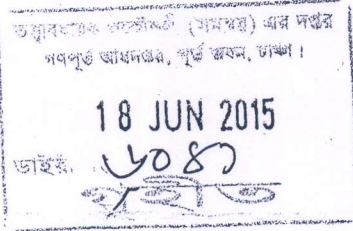 তত্ত্বাবধায়ক প্রকৌশলী (সমন্বয়) এর দপ্তর
গণপূর্ত অধিদপ্তর, পূর্ত ভবন, ঢাকা।
18 JUN 2015
ডাইরী
৬০৪১
গৃহীত